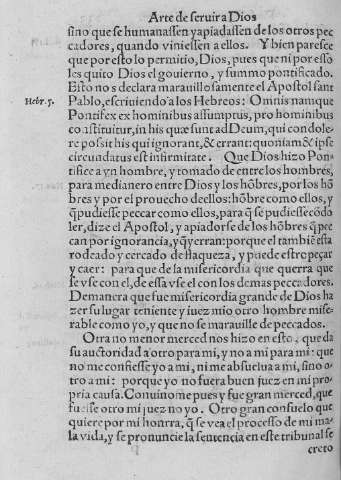 Arte de seruir a Dios
sino que se humanassen y apiadassen de los otros pec
cadores, quando viniessen a ellos. Y bien paresce
que por esto lo permitio, Dios, pues que ni por esso
les quito Dios el gouierno, y summo pontificado.
Esto nos declara marauillosamente el Apostol sant
Hebr. 5. Pablo, escriuiendo a los Hebreos: Omnis namque
Pontifex ex hominibus assumptus, pro hominibus
constituitur, in his quæ sunt ad Deum, qui condole
re possit his qui ignorant, & errant: quoniam & ipse
circundatus est infirmitate. Que Dios hizo Pon-
tifice a vn hombre, y tomado de entre los hombres,
para medianero entre Dios y los hõbres, por los hõ
bres y por el prouecho dellos: hõbre como ellos, y
q̃ pudiesse peccar como ellos, para q̃ se pudiesse cõdo
ler, dize el Apostol, y apiadorse de los hõbres q̃ pec
can por ignorancia, y q̃ yerran: porque el tambiẽ esta
rodeado y cercado de flaqueza, y puede estropeçar
y caer: para que de la misericordia que querra que
se vse con el, de essa vse el con los demas peccadores.
Demanera que fue misericordia grande de Dios ha
zer su lugar teniente y iuez mio otro hombre mise-
rable como yo, y que no se marauille de peccados.
Otra no menor merced nos hizo en esto, que da
su auctoridad a otro para mi, y no a mi para mi: que
no me confiesse yo a mi, ni me absuelua a mi, sino o-
tro a mi: porque yo no fuera buen juez en mi pro-
pria causa. Conuino me pues y fue gran merced, que
fuesse otro mi juez no yo. Otro gran consuelo que
quiere por mi honrra, q̃ se vea el processo de mi ma-
la vida, y se pronuncie la sentencia en este tribunal se
creto